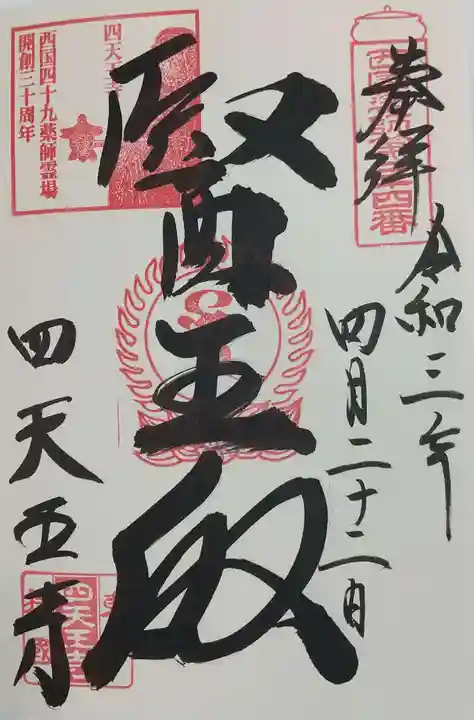 奉拝
令和三年
四月二十二日
醫王殿
四天王寺
西国四十九薬師霊場
開創三十周年
四天王寺